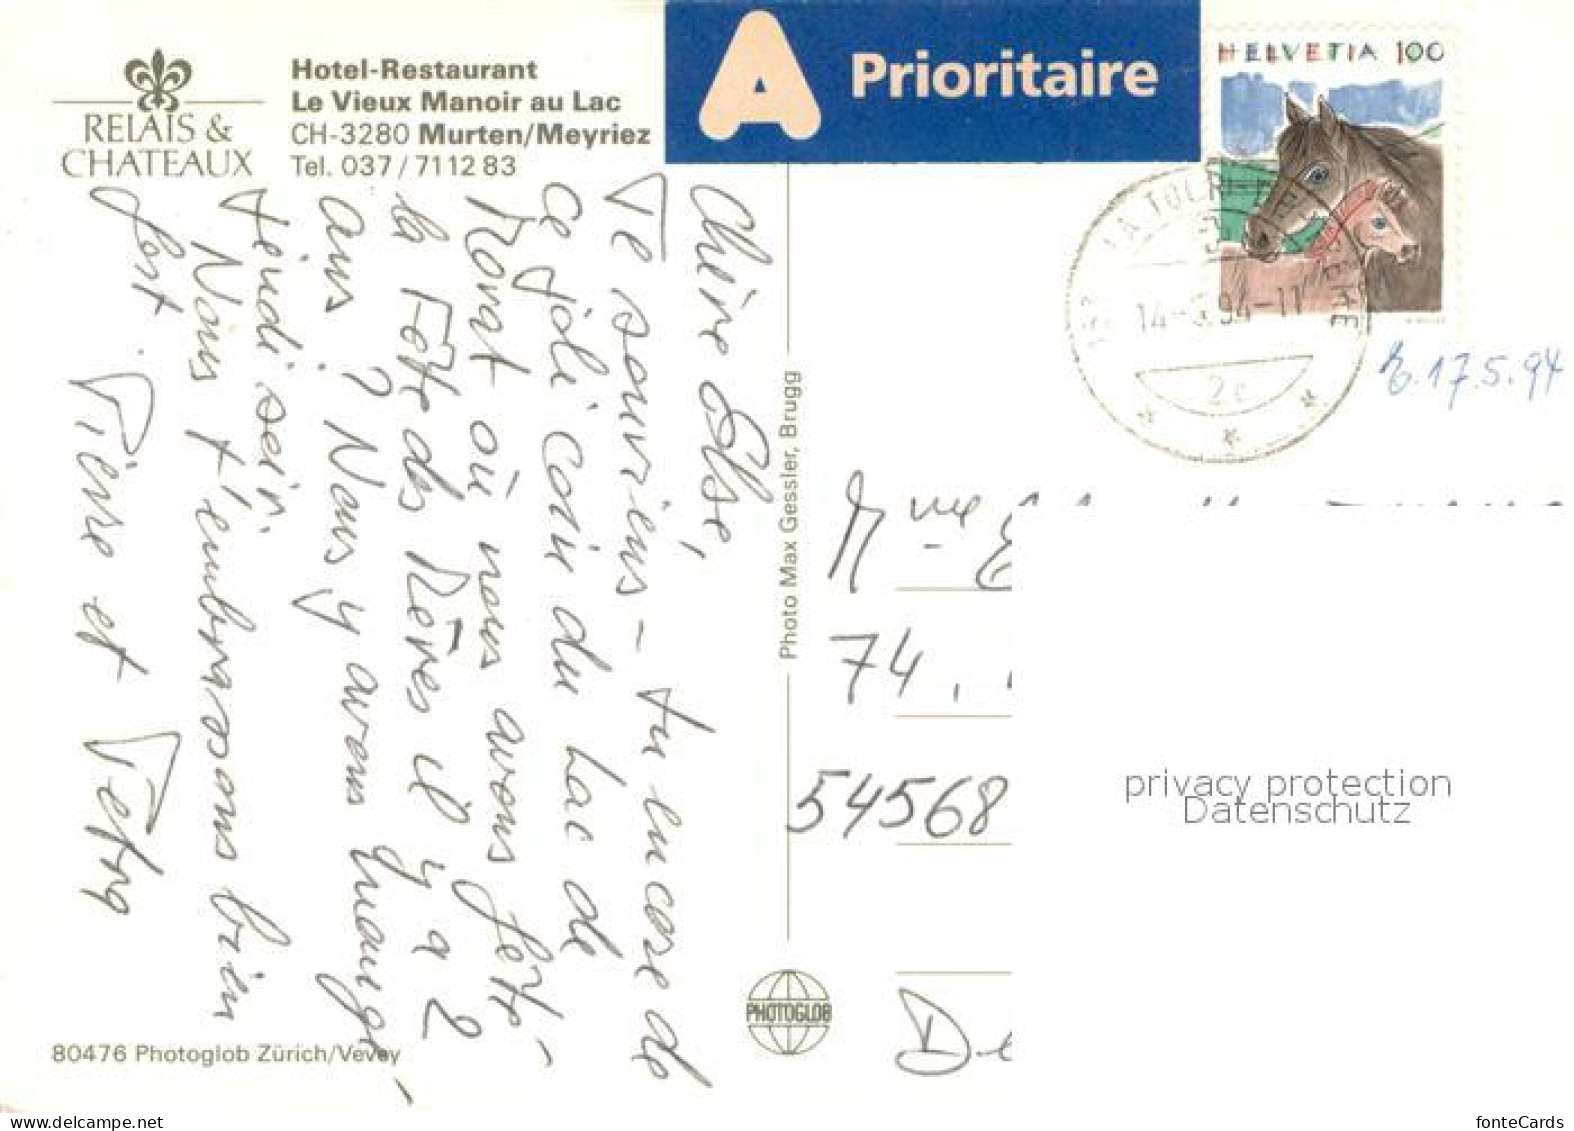 RELAIS &
CHATEAUX
Hotel-Restaurant
Le Vieux Manoir au Lac
CH-3280 Murten/Meyriez
Tel. 037 / 71 12 83
A Prioritaire
HELVETIA 100
14-5.94-11
2c
17.5.94
Chère Else,
Te souviens - tu encore de
ce joli coin du Lac de
Morat où nous avons fêté
la Fête des Mères il y a 2
ans ? Nous y avons mangé
Nous t'embrassons bien
fort. Pierre et
Photo Max Gessler, Brugg
Mme
74,
54568
De
privacy protection
Datenschutz
PHOTOGLOB
80476 Photoglob Zürich/Vevey
delcampe.net
fonteCards